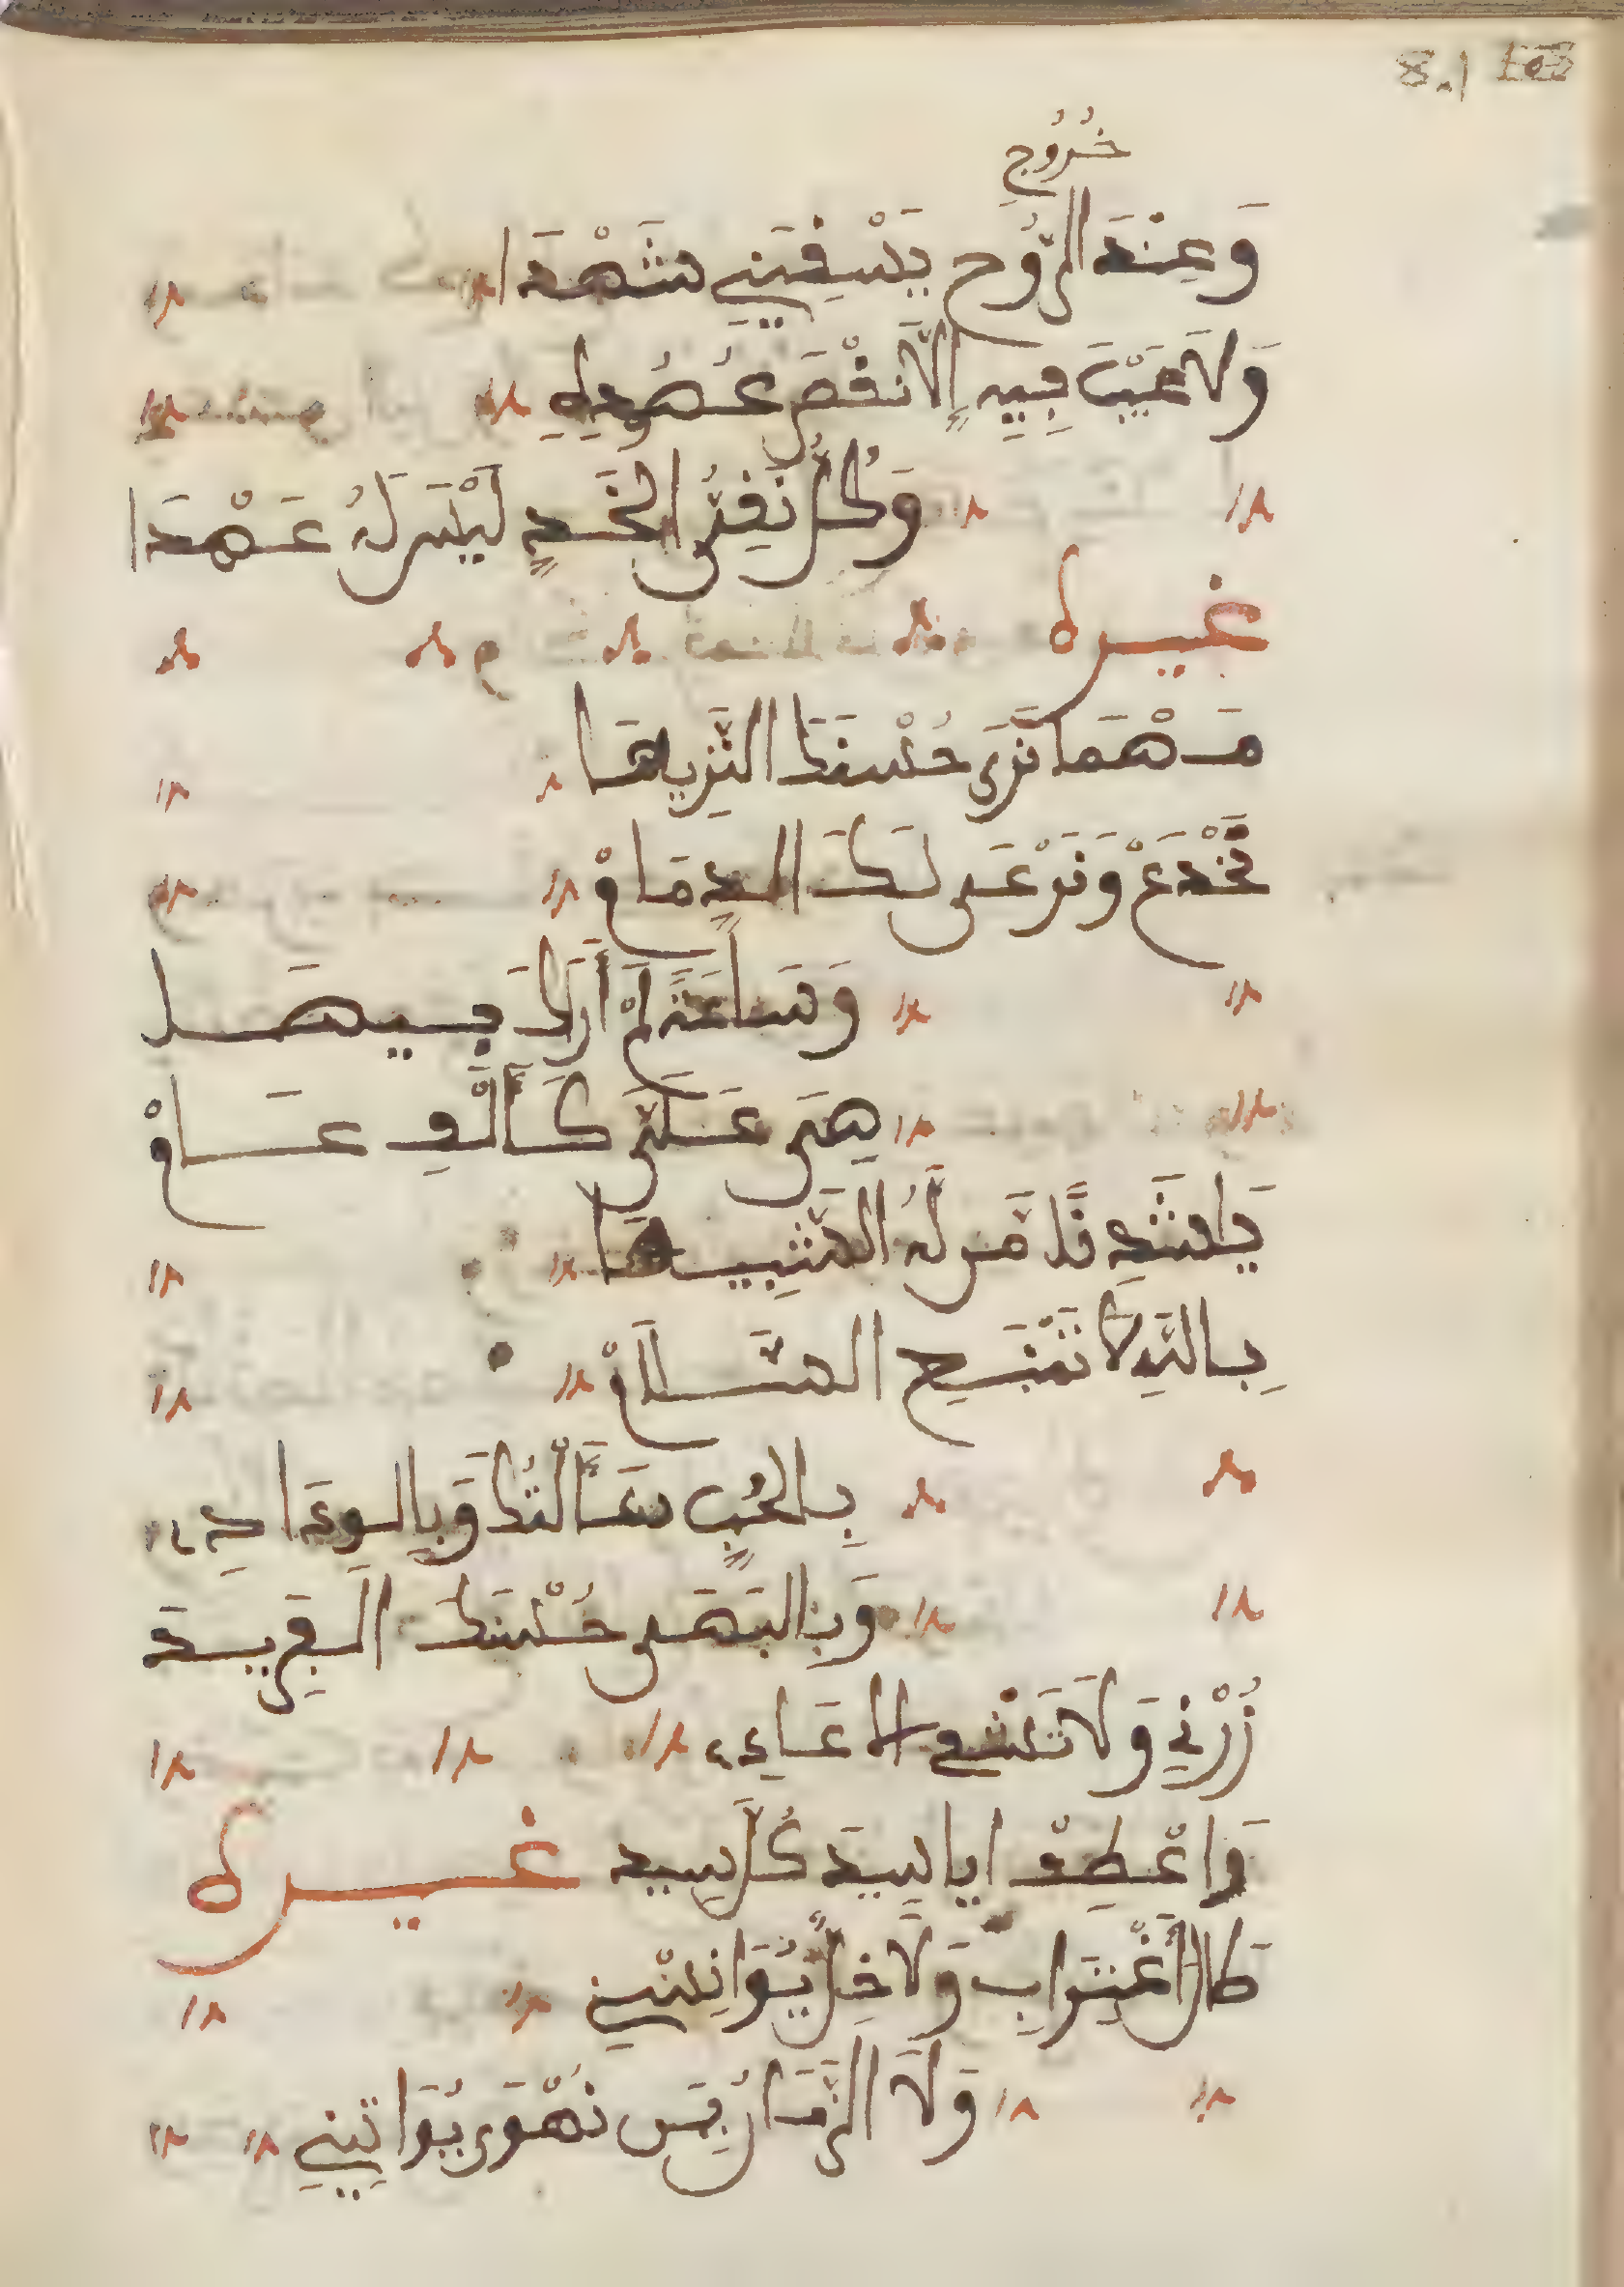 8.1
خُرُوجِ
وَعِنْدَ الرُّوح يَسْقِيَنِي شَهْدَا
وَلاَ عَيْبَ فِيهِ إِلاَّ نَقْصَ عُهُودِهِ
وَكُلُّ نَقِيُّ الخَدِّ لَيْسَ لَهُ عَهْدَا
غيره
مَهْمَا نَرَى حُسْنَكَ النَّزِيهَا
نَخْدَعْ وَنَرْعَى لَكَ الذِّمَامْ
وَسَاعَةً لَمْ أَرَاكَ فيهَا
هِيَ عَلَيَّ كَأَلْفِ عَامْ
يَا شَادِنًا مَا لَهُ الشَّبِيهَا
بِالله لاَ تَنْسَ السَّلاَمْ
بِالحُبِّ سَأَلْتُكَ وَبِالوِدَادِ
وَبِالبَهَى حُسْنِكَ الفَرِيدَ
زُرْنِي وَلاَ تَشْفِ الاعَادِي
وَاعْطِفْ ايَا سَيِّدَ كُلّ سيد
غيره
طَالَ اغْتِرَابِ وَلاَ خِلٌّ يُوَانِسْنِي
وَلاَ الزَّمَانُ بِمَن نَهْوَى يُوَاتِينِي